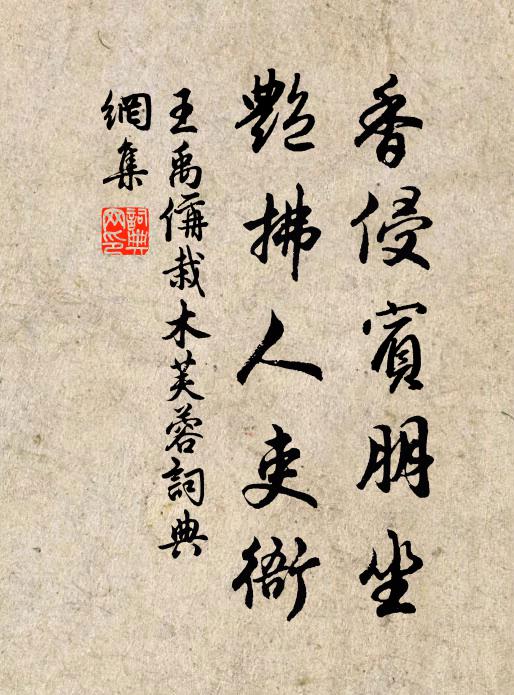 香侵賓朋坐
艷拂人吏衙
王禹偁栽木芙蓉詞典
網集
詞典網印